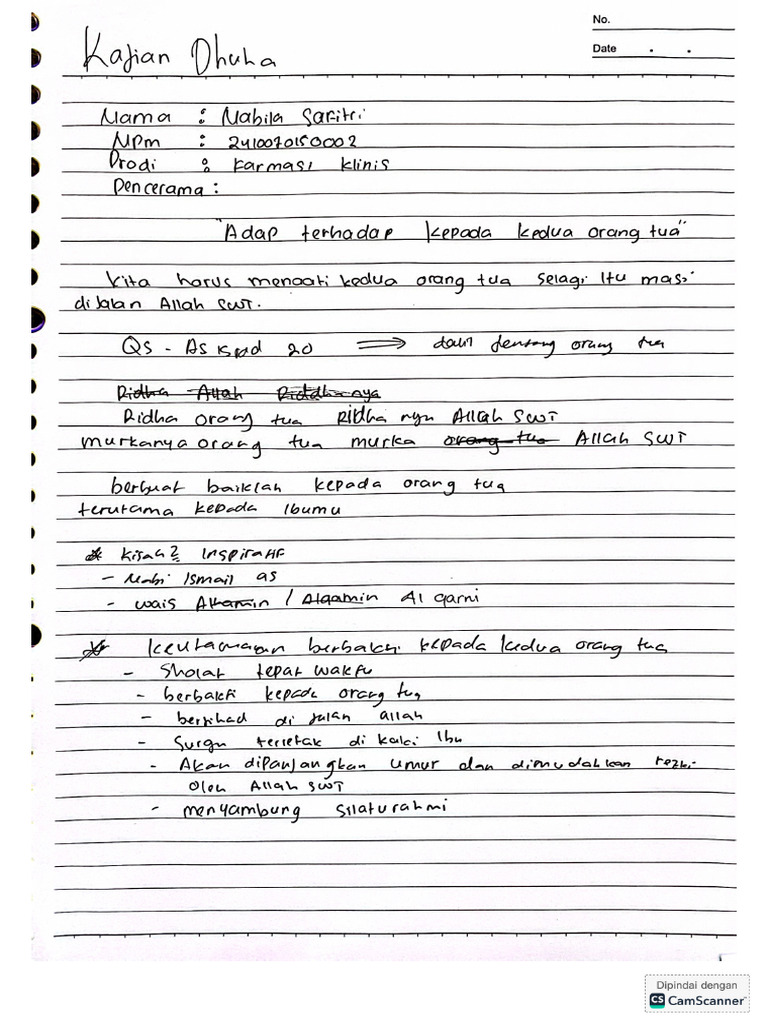 No.
Date . .
Kajian Dhuha
Nama : Nabila Safitri
NPM : 2410070150002
Prodi : Farmasi Klinis
Pencerama :
"Adap terhadap kepada kedua orang tua"
kita harus menaati kedua orang tua selagi itu masi
dijalan Allah SWT.
QS - As 20 ⇒ dalil tentang orang tua
Ridha Allah Riddhanya
Ridha orang tua Ridha nya Allah SWT
murkanya orang tua murka orang tua Allah SWT
berbuat baiklah kepada orang tua
terutama kepada Ibumu
* Kisah2 Inspiratif
- Nabi Ismail as
- wais / Alqamin Al qarni
* keutamaan berbakti kepada kedua orang tua
- Sholat tepat waktu
- berbakti kepada orang tua
- berjihad di jalan allah
- Surga terletak di kaki Ibu
- Akan dipanjangkan umur dan dimudahkan rezki
oleh Allah SWT
- menyambung silaturahmi
Dipindai dengan
CS CamScanner